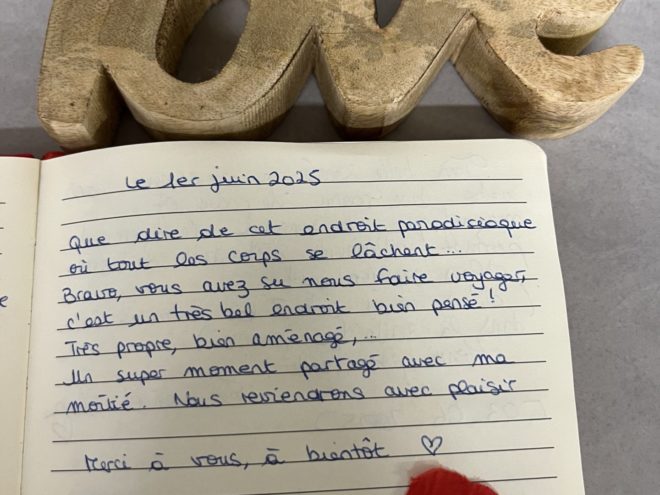 Le 1er juin 2025
Que dire de cet endroit paradisiaque
où tout les corps se lâchent...
Bravo, vous avez su nous faire voyager,
c'est un très bel endroit bien pensé!
Très propre, bien aménagé,...
Un super moment partagé avec ma
moitié. Nous reviendrons avec plaisir
Merci à vous, à bientôt ♡